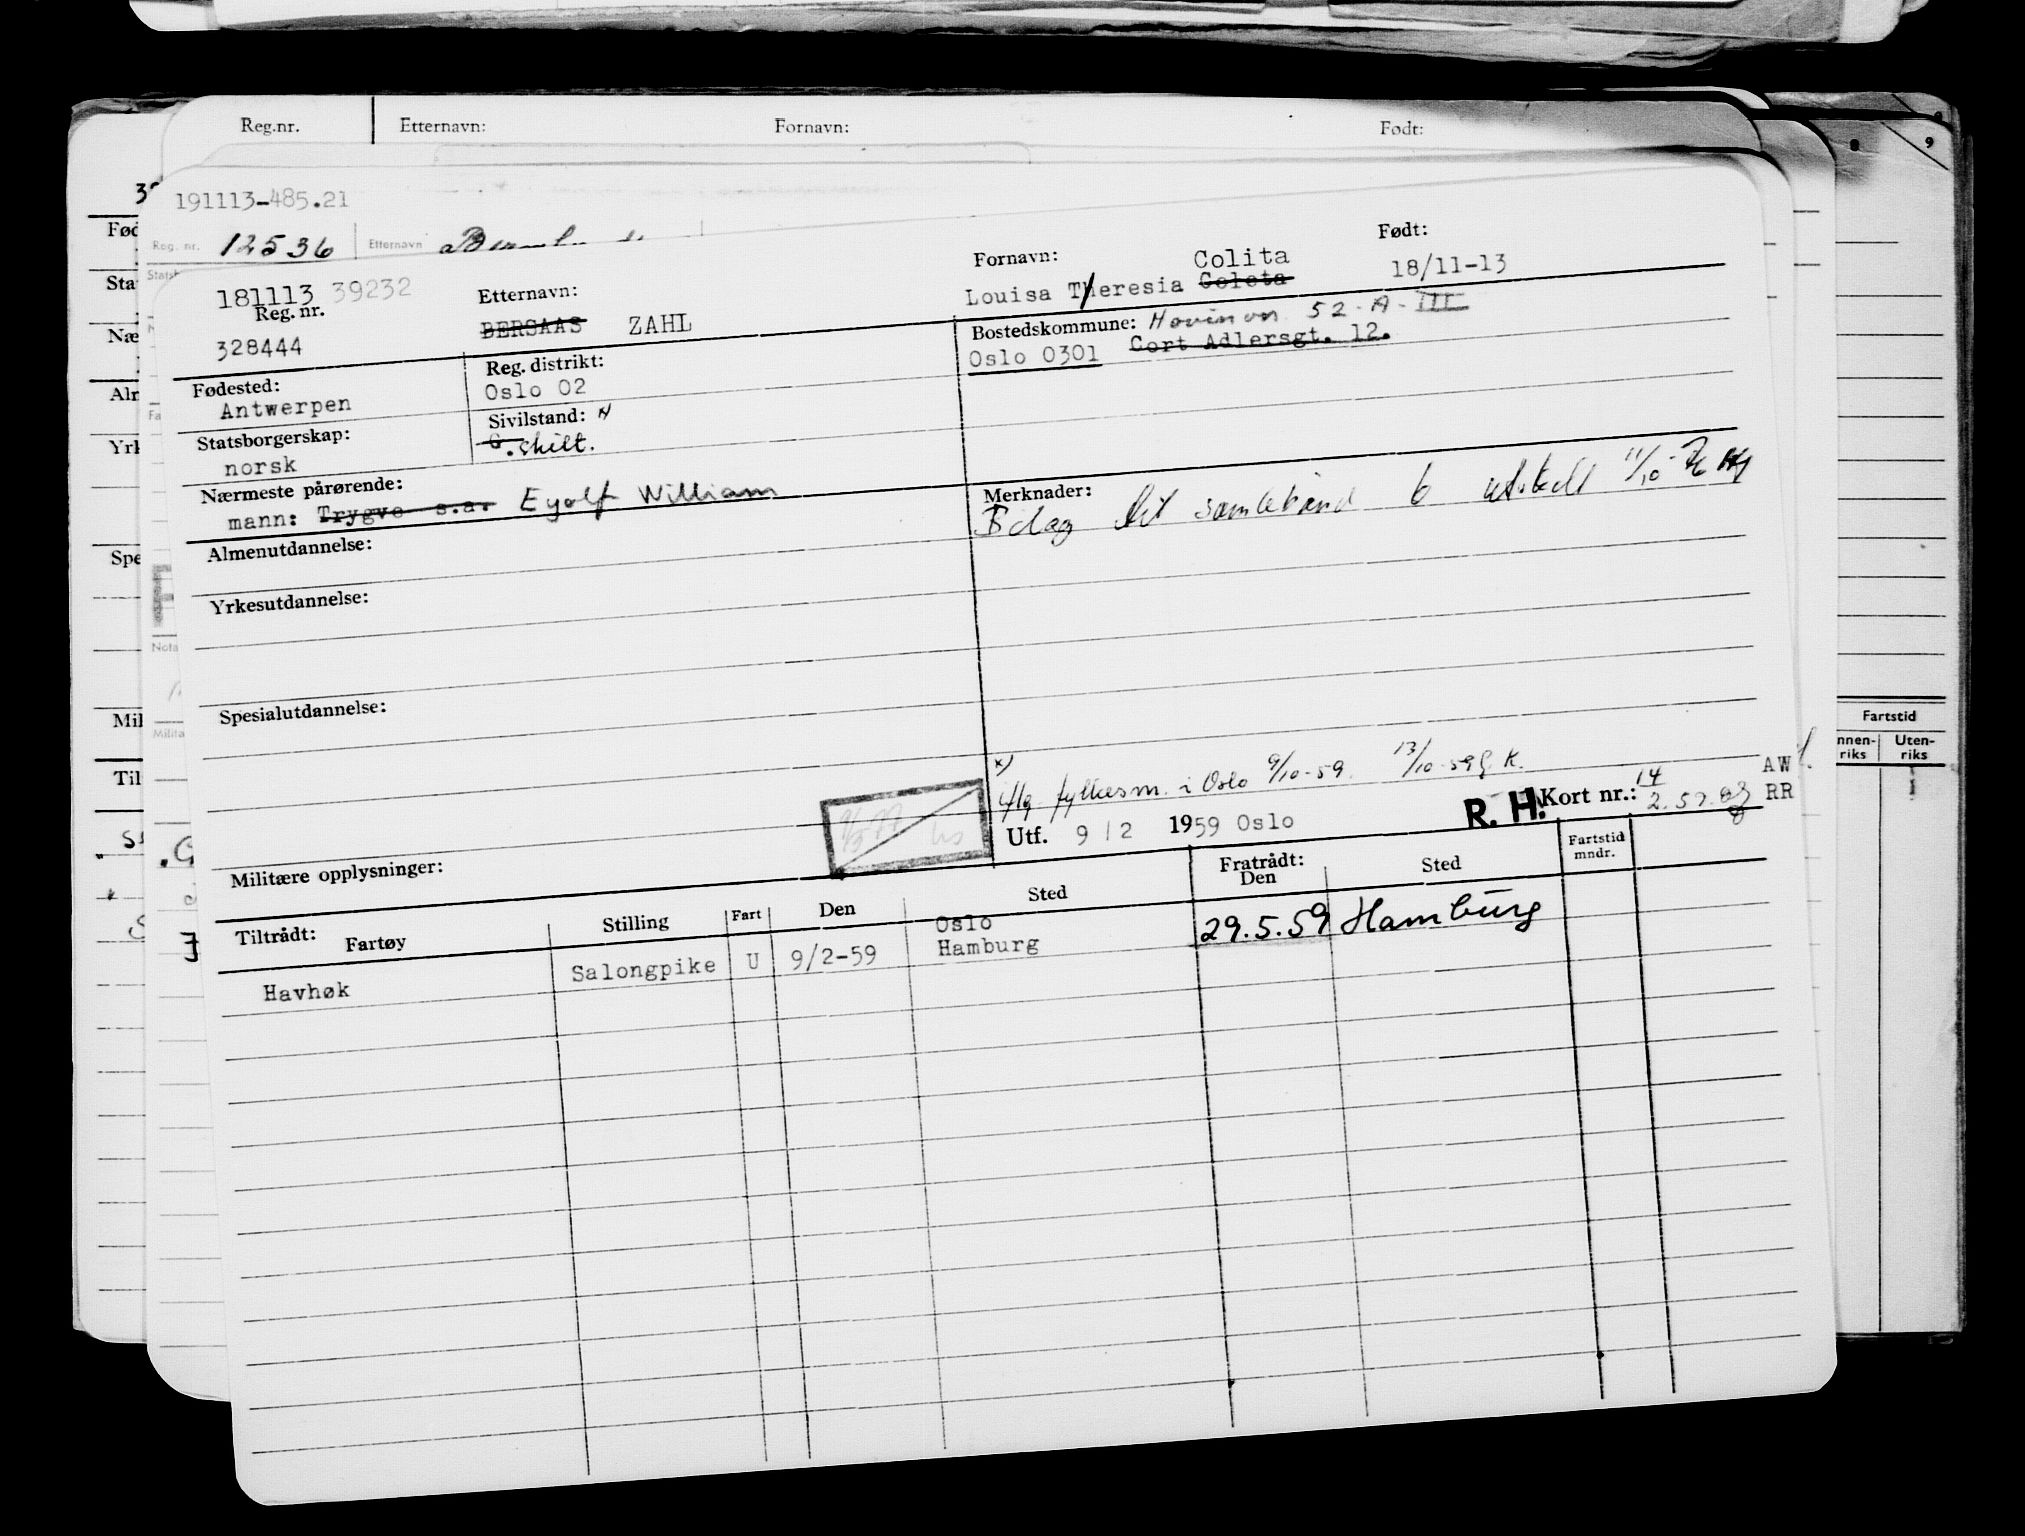 Reg.nr. Etternavn: Fornavn: Født:
191113-485.21
Reg. nr. 12536 Etternavn
181113 39232
Reg. nr.
328444
Etternavn:
BERSAAS ZAHL
Fornavn: Colita
Louisa Theresia Coleta
Født:
18/11-13
Fødested:
Antwerpen
Reg. distrikt:
Oslo 02
Bostedskommune: Hovinvn. 52-A-III
Oslo 0301 Cort Adlersgt. 12.
Statsborgerskap:
norsk
Sivilstand: x)
G. skilt.
Nærmeste pårørende:
mann: Trygve s.a. Eyolf William
Merknader:
Bilag til samlebånd 6 utstedt 11/10
Almenutdannelse:
Yrkesutdannelse:
Spesialutdannelse:
x)
iflg. fylkesm. i Oslo 9/10-59. 13/10-59 G. K.
Utf. 9/2 1959 Oslo
R. H. Kort nr.: 14
2.57.
AW
RR
Militære opplysninger:
Tiltrådt: Fartøy Stilling Fart Den Sted Fratrådt: Den Sted Fartstid mndr.
Havhøk Salongpike U 9/2-59 Oslo Hamburg 29.5.59 Hamburg
Fartstid
Uten-
riks
8 9